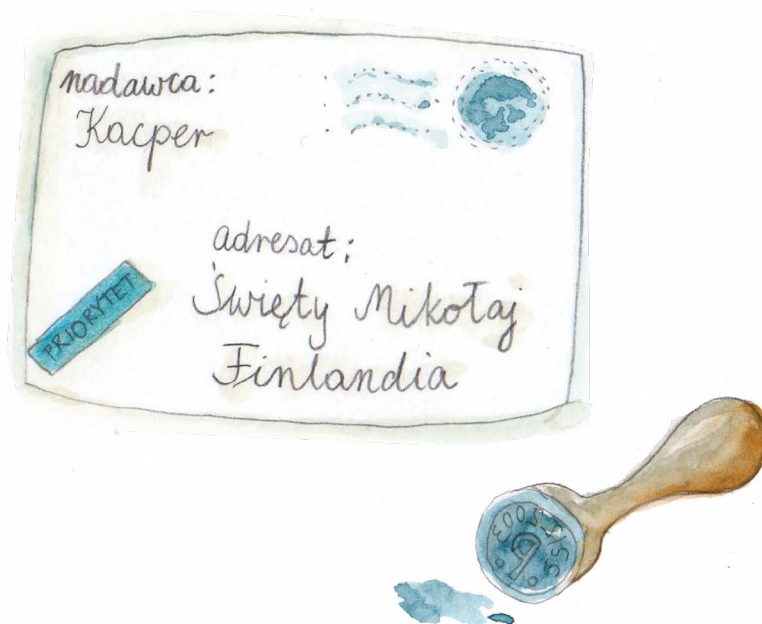 nadawca:
Kacper
adresat:
Święty Mikołaj
Finlandia
PRIORYTET